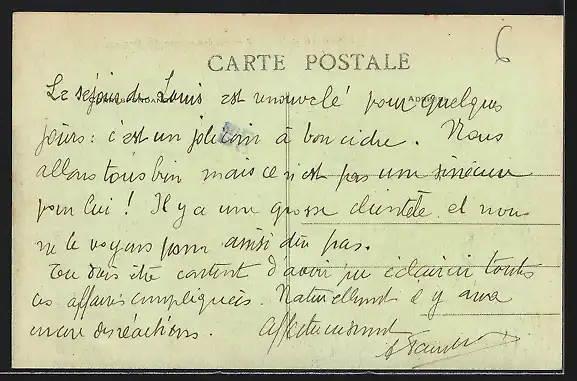 6
CARTE POSTALE
CORRESPONDANCE
ADRESSE
Le séjour de Louis est renouvelé pour quelques
jours : c'est un joli coin à bon cidre. Nous
allons tous bien mais ce n'est pas une sinécure
pour lui ! Il y a une grosse clientèle et nous
ne le voyons pour ainsi dire pas.
Tu dois être content d'avoir pu éclaircir toutes
ces affaires compliquées. Naturellement il y aura
encore des réactions. Affectueusement